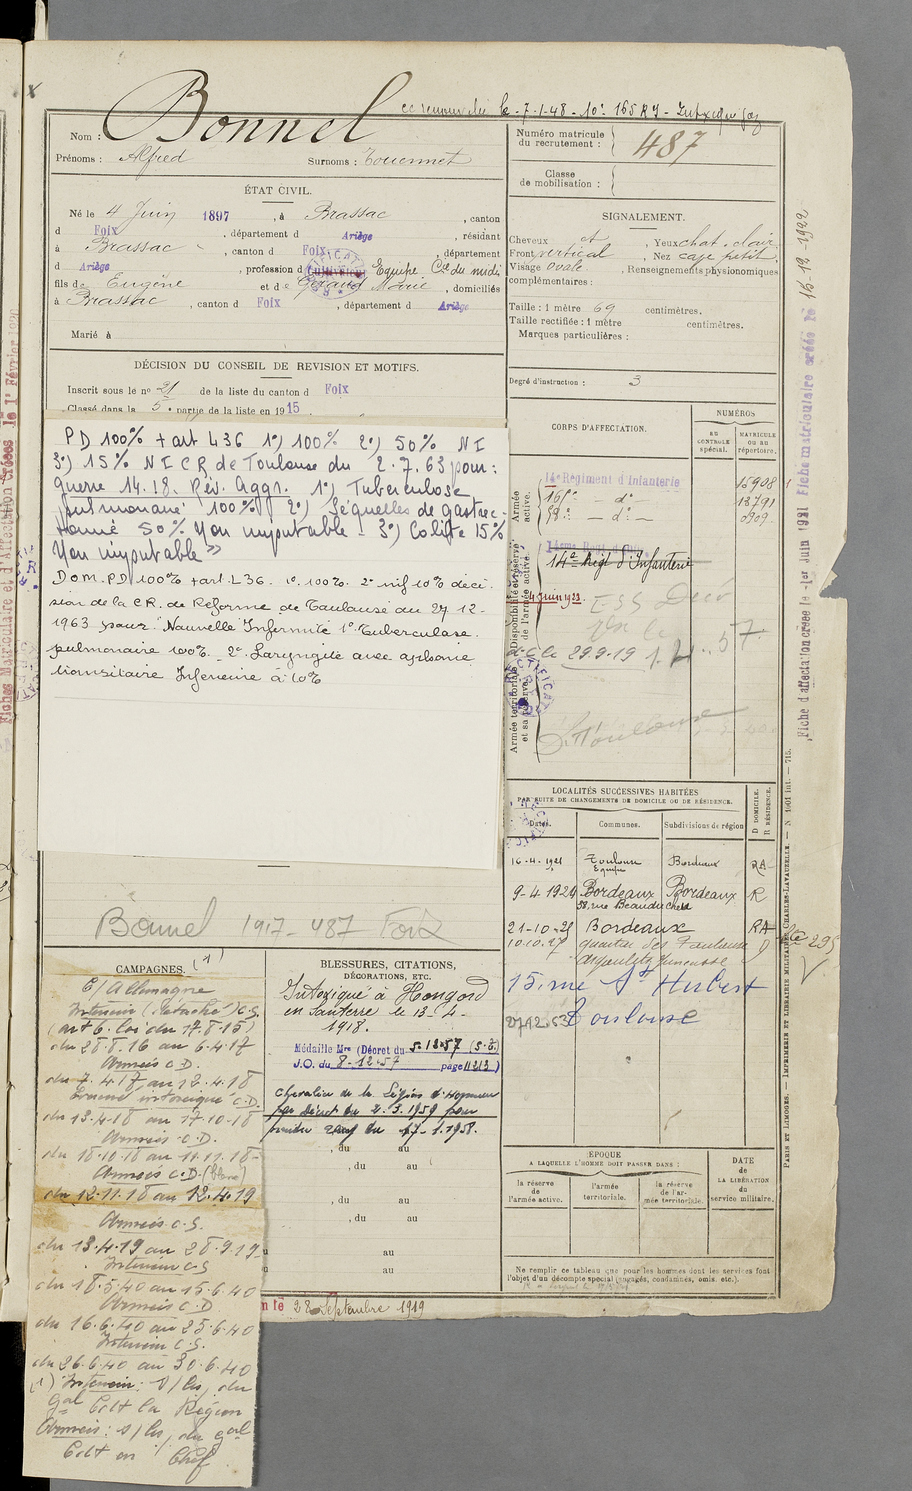 Bonnel
le 7-1-48
Nom :
Prénoms : Alfred Surnoms :
Numéro matricule
du recrutement : 487
Classe
de mobilisation :
ÉTAT CIVIL.
Né le 4 Juin 1897 , à Brassac , canton
d Foix , département d Ariège , résidant
à Brassac , canton d Foix , département
d Ariège , profession d Equipe Cie du midi
fils de Eugène et de Géraud Marie , domiciliés
à Brassac , canton d Foix , département d Ariège
Marié à
DÉCISION DU CONSEIL DE REVISION ET MOTIFS.
Inscrit sous le no 21 de la liste du canton d Foix
Classé dans la 5e partie de la liste en 1915 .
SIGNALEMENT.
Cheveux ct , Yeux chat. clair
Front vertical , Nez cave petit.
Visage ovale , Renseignements physionomiques
complémentaires :
Taille : 1 mètre 69 centimètres.
Taille rectifiée : 1 mètre centimètres.
Marques particulières :
Degré d'instruction : 3
PD 100% + art L36 1°) 100% 2°) 50% NI
3°) 15% NI CR de Toulouse du 2.7.63 pour :
guerre 14.18. Rés. Aggr. 1°) Tuberculose
pulmonaire 100% 2°) Séquelles de gastrec-
tomie 50% Non imputable - 3°) Colite 15%
Non imputable »
Dom. PD 100% + art. L36. 1°. 100%. 2° inf 10% déci-
sion de la CR. de Réforme de Toulouse du 27-12-
1963 pour : Nouvelle Infirmité 1° Tuberculose
pulmonaire 100% - 2° Laryngite avec aphonie
transitoire Inférieure à 10%
CORPS D'AFFECTATION.
NUMÉROS
AU CONTROLE spécial.
MATRICULE OU AU répertoire.
Armée active.
14e Régiment d'Infanterie 15908
161e - do - 13791
88e - do - 0909
Disponibilité et réserve de l'armée active.
14e Régt d'Infanterie
29.9.19
Armée territoriale et sa réserve.
Toulouse
LOCALITÉS SUCCESSIVES HABITÉES
PAR SUITE DE CHANGEMENTS DE DOMICILE OU DE RÉSIDENCE.
Dates. Communes. Subdivisions de région
D DOMICILE. R RÉSIDENCE.
16-4-1921 Toulouse Bordeaux RA
Equipe
9-4-1924 Bordeaux Bordeaux R
21-10-25 Bordeaux RA
10.10.27
15, rue St Hubert
27.12.63 Toulouse
Bonnel 1917-487 Foix
CAMPAGNES. (1)
C/Allemagne
Intérieur (Détaché) C.S.
(art 6. loi du 17.8.15)
du 28.8.16 au 6.4.17
Armées C.D.
du 7.4.17 au 12.4.18
Evacué intoxiqué C.D.
du 13.4.18 au 17-10-18
Armées C.D.
du 18.10.18 au 11.11.18
Armées C.D.
du 12.11.18 au 12.4.19
Armées C.S.
du 13.4.19 au 28.9.19
Intérieur C.S
du 18.5.40 au 15.6.40
Armées C.D
du 16.6.40 au 25.6.40
Intérieur C.S.
du 26.6.40 au 30.6.40
(1) Intérieur : s/les du
Gal Cdt la Région
Armées : s/les du gal
Cdt en Chef
BLESSURES, CITATIONS,
DÉCORATIONS, ETC.
Intoxiqué à Hangard
en Santerre le 13-4-
1918.
Médaille Mre (Décret du 5.12.57
J.O. du 8-12-57 page 11213)
Chevalier de la Légion d'Honneur
par décret du 2.3.1959 pour
prendre rang du 1.1958.
, du au
, du au
, du au
, du au
au
au
ÉPOQUE
A LAQUELLE L'HOMME DOIT PASSER DANS :
la réserve de l'armée active.
l'armée territoriale.
la réserve de l'armée territoriale.
DATE
de LA LIBÉRATION
du
service militaire.
Ne remplir ce tableau que pour les hommes dont les services font
l'objet d'un décompte spécial (engagés, condamnés, omis, etc.).
28 Septembre 1919
Fiche d'affectation créée le 1er Juin 1921 Fiche matriculaire créée le 15-12-1922
PARIS ET LIMOGES. — IMPRIMERIE ET LIBRAIRIE MILITAIRES CHARLES-LAVAUZELLE.